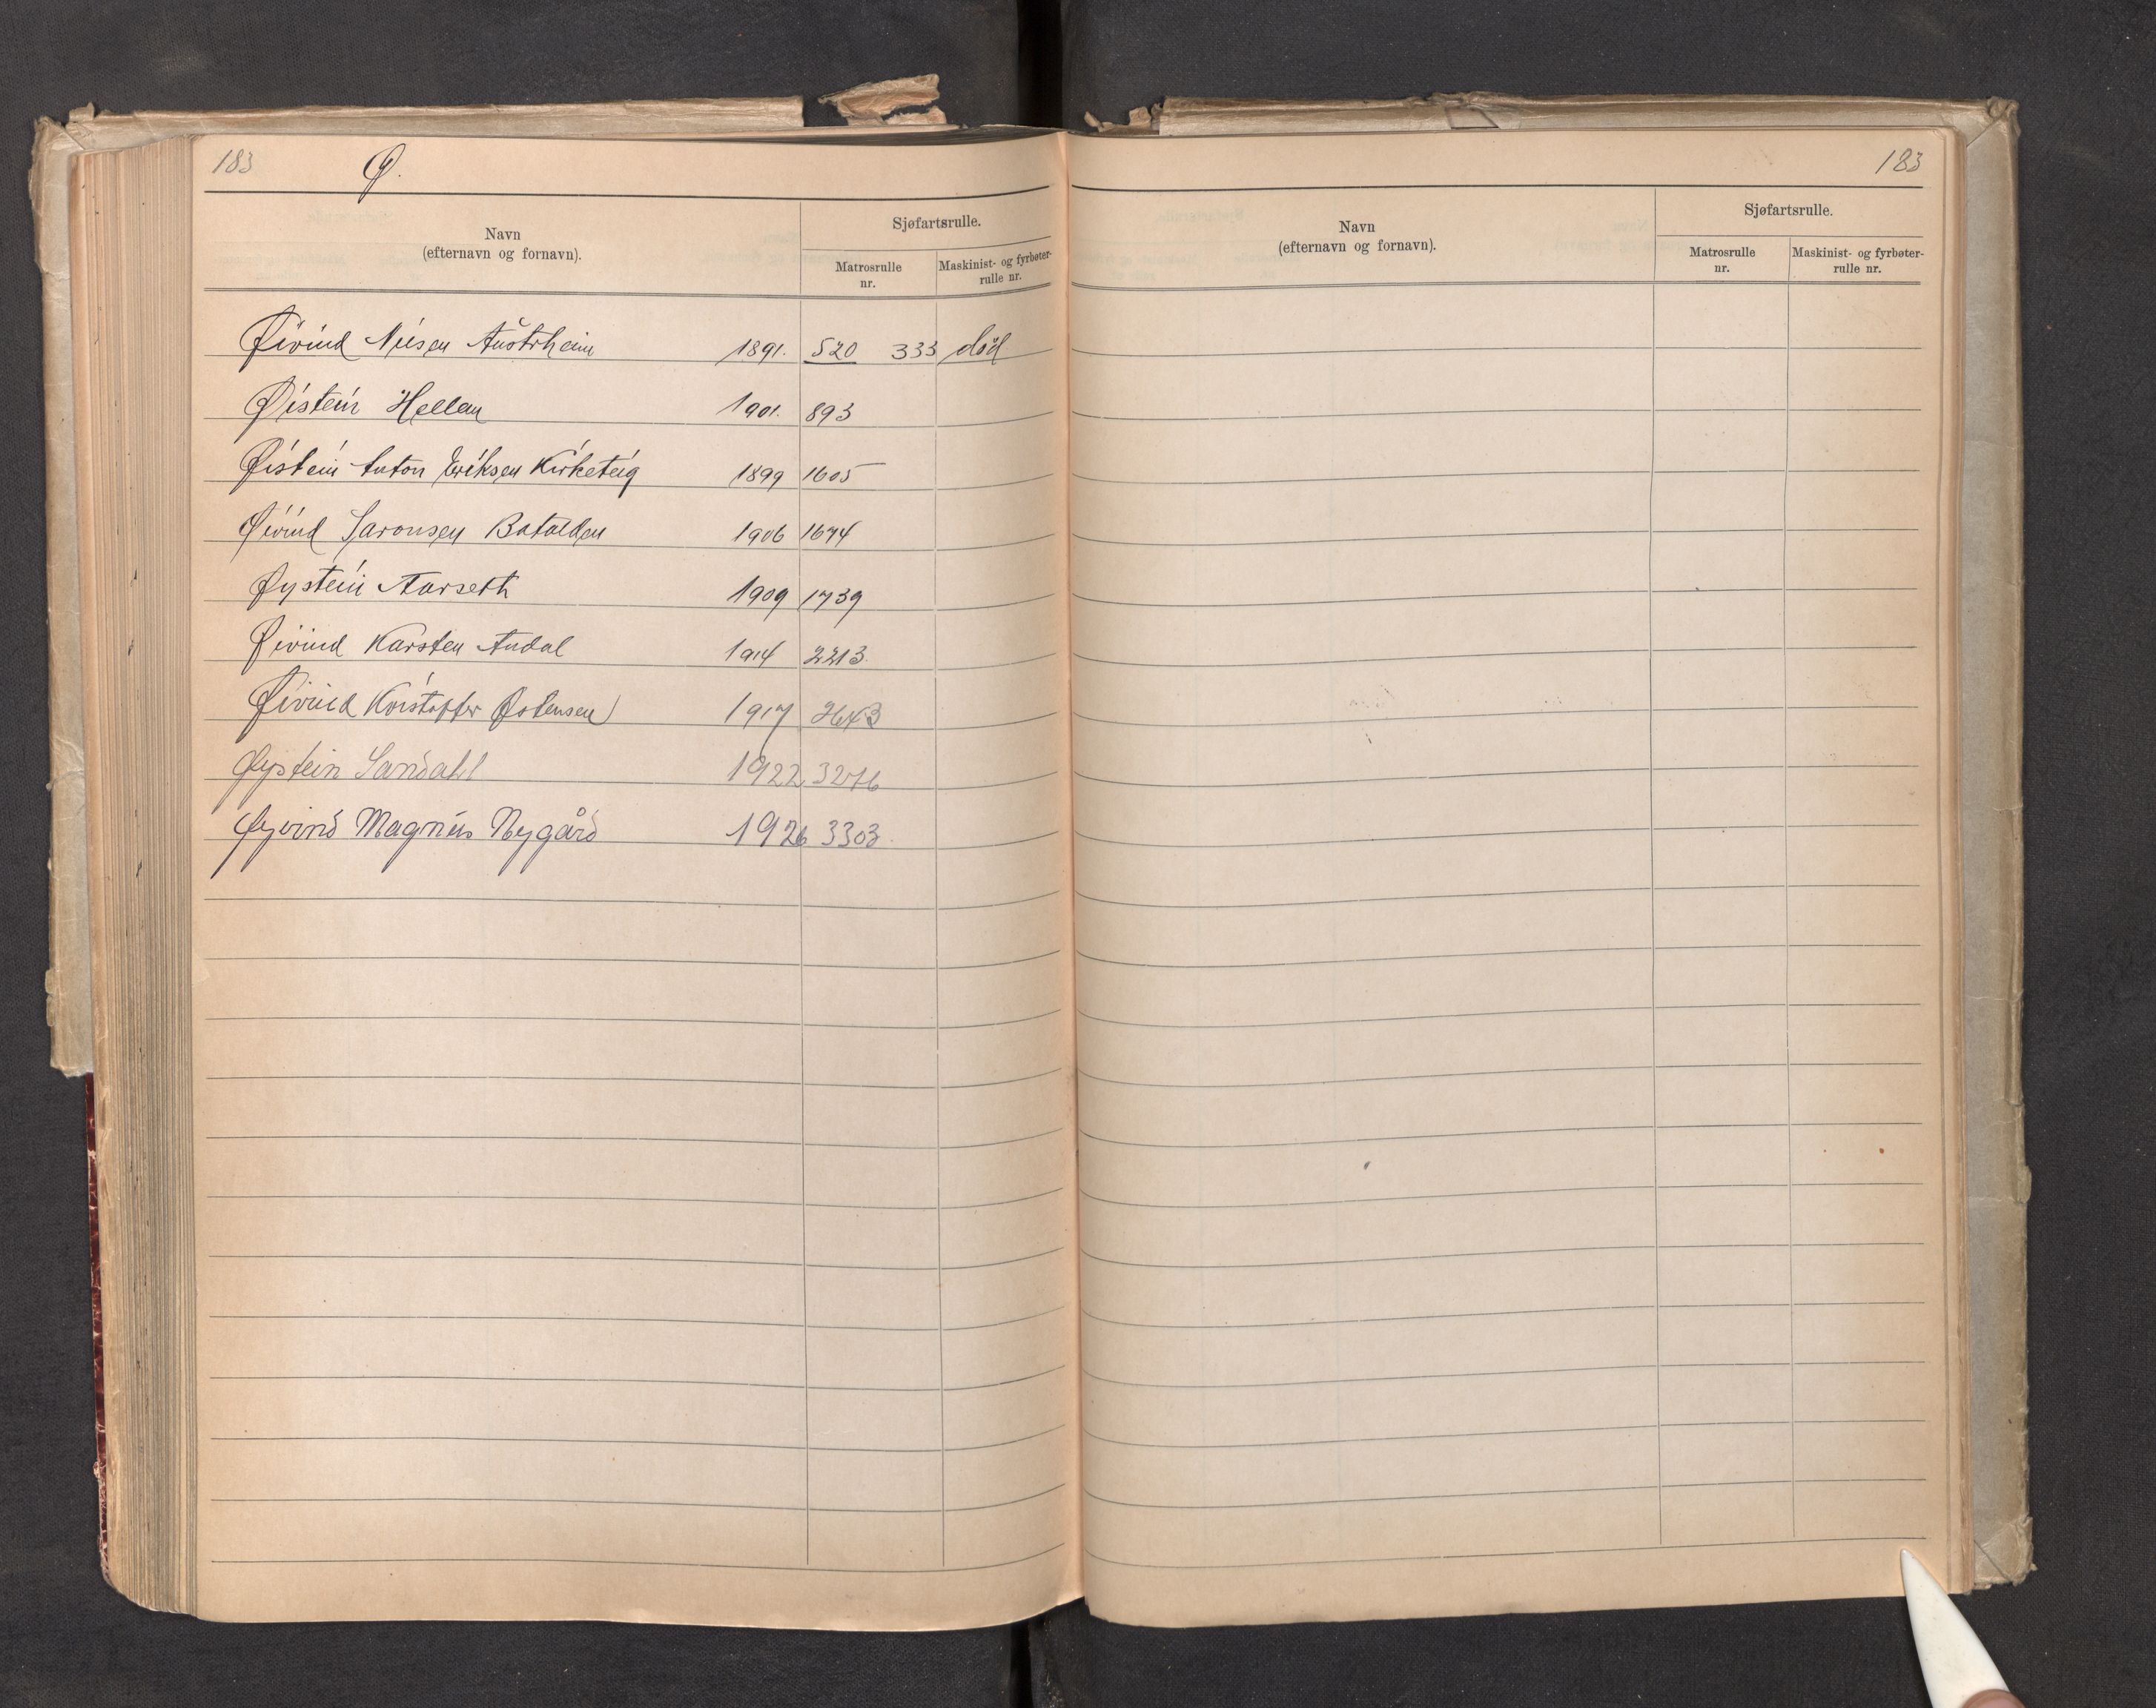 183 Ø.
Navn
(efternavn og fornavn).
Sjøfartsrulle.
Matrosrulle
nr.
Maskinist- og fyrbøter-
rulle nr.
Øivind Nilsen Austrheim 1891. 520 333 död
Øistein Hellem 1901. 893
Øistein Anton Eriksen Kirketeig 1899 1605
Øivind Saronsen Batalden 1906 1674
Øystein Aarseth 1909 1739
Øivind Karsten Andal 1914 2213
Øivind Kristoffer Østensen 1917 2643
Øystein Sandahl 1922 3276
Øyvind Magnus Nygård 1926 3303
183
Navn
(efternavn og fornavn).
Sjøfartsrulle.
Matrosrulle
nr.
Maskinist- og fyrbøter-
rulle nr.